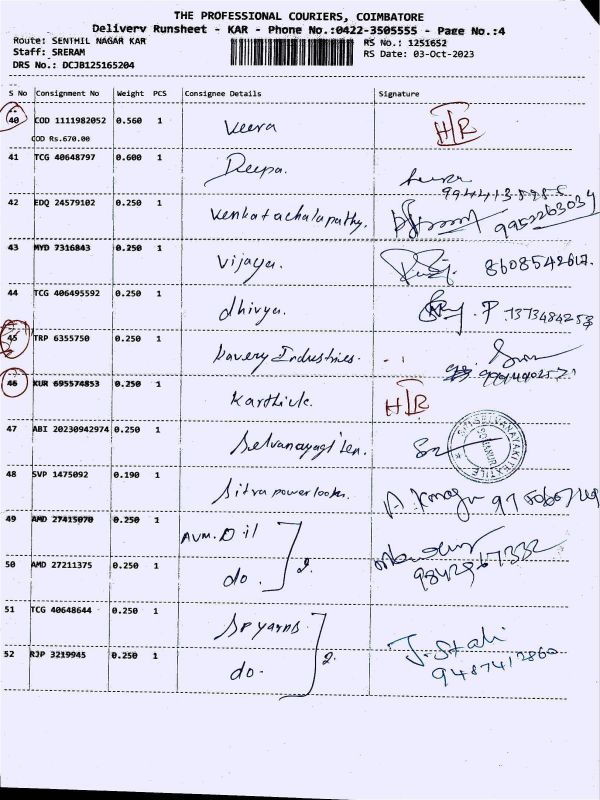 THE PROFESSIONAL COURIERS, COIMBATORE
Delivery Runsheet - KAR - Phone No.:0422-3505555 - Page No.:4
Route: SENTHIL NAGAR KAR
RS No.: 1251652
Staff: SRERAM
RS Date: 03-Oct-2023
DRS No.: DCJB125165204
S No Consignment No Weight PCS Consignee Details Signature
40 COD 1111982052 0.560 1 Veera H/R
COD Rs.670.00
41 TCG 40648797 0.600 1 Deepa.
42 EDQ 24579102 0.250 1 Venkatachalapathy. 9952263034
43 MYD 7316843 0.250 1 Vijaya. 8608542617.
44 TCG 406495592 0.250 1 dhivya. 7373484253
45 TRP 6355750 0.250 1 Kavery Industries.
46 KUR 695574853 0.250 1 Karthick. H/R
47 ABI 20230942974 0.250 1 Selvanayagi Tex.
SRI SELVANAYAKI TEXTILE
48 SVP 1475092 0.190 1 Sitra powerloom.
49 AMD 27415070 0.250 1 AVM. Oil
50 AMD 27211375 0.250 1 do. 2. 9842967332
51 TCG 40648644 0.250 1 SP yarns
52 RJP 3219945 0.250 1 do. 2. 9487412860